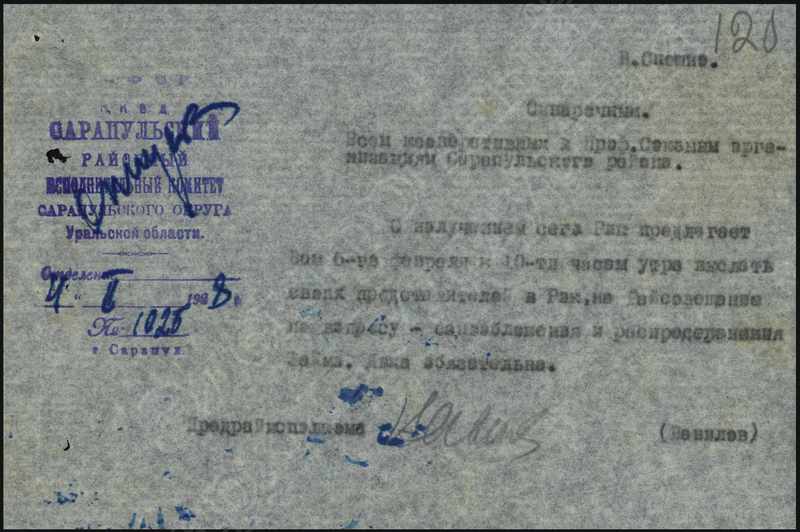 120
В.Спешно.
С нарочным.
Всем кооперативным и Проф.Союзным орга-
низациям Сарапульского района.
Р С Ф С Р
Н. К. В. Д.
САРАПУЛЬСКИЙ
РАЙОННЫЙ
ИСПОЛНИТЕЛЬНЫЙ КОМИТЕТ
САРАПУЛЬСКОГО ОКРУГА
Уральской области.
Отделение
4 " II 1928 г.
№ 1025
г. Сарапул.
С получением сего Рик предлагает
Вам 6-го февраля к 10-ти часам утра выслать
своих представителей в Рик, на Райсовещание
по вопросу - и распространения
займа. Явка обязательна.
Предрайисполкома